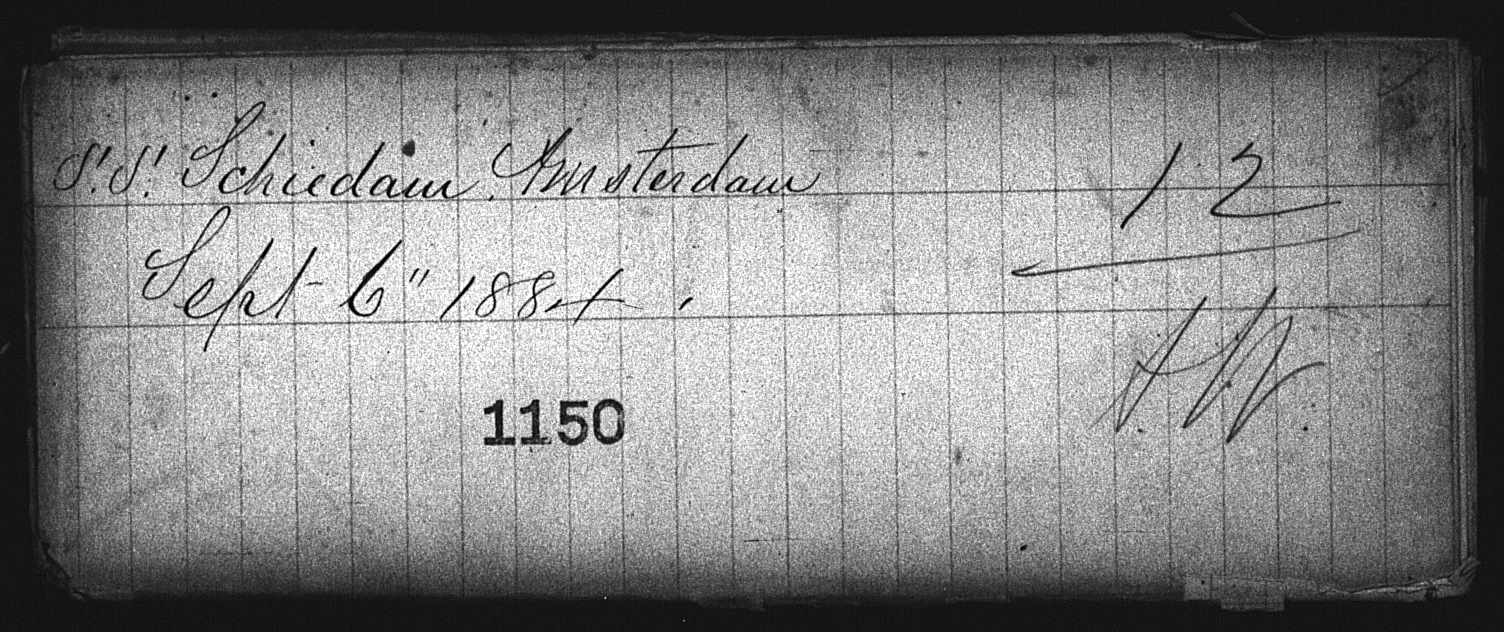 S.S. Schiedam. Amsterdam 12
Sept 6" 1884.
1150